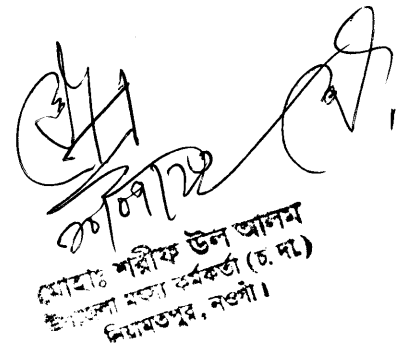 মোহাঃ শরীফ উল আলম
উপজেলা মৎস্য কর্মকর্তা (চ. দা.)
নিয়ামতপুর, নওগাঁ।